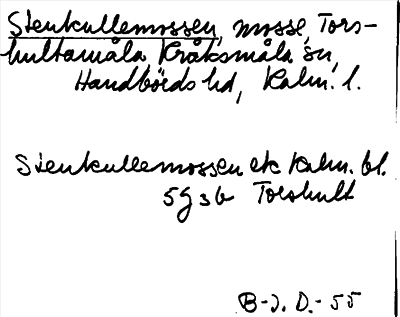 Stenkullemossen, mosse, Tors-
hultamåla, Kråksmåla sn,
Handbörds hd, Kalm. l.
Stenkullemossen ek Kalm. bl.
5g3b Torshult
B-J. D. - 55